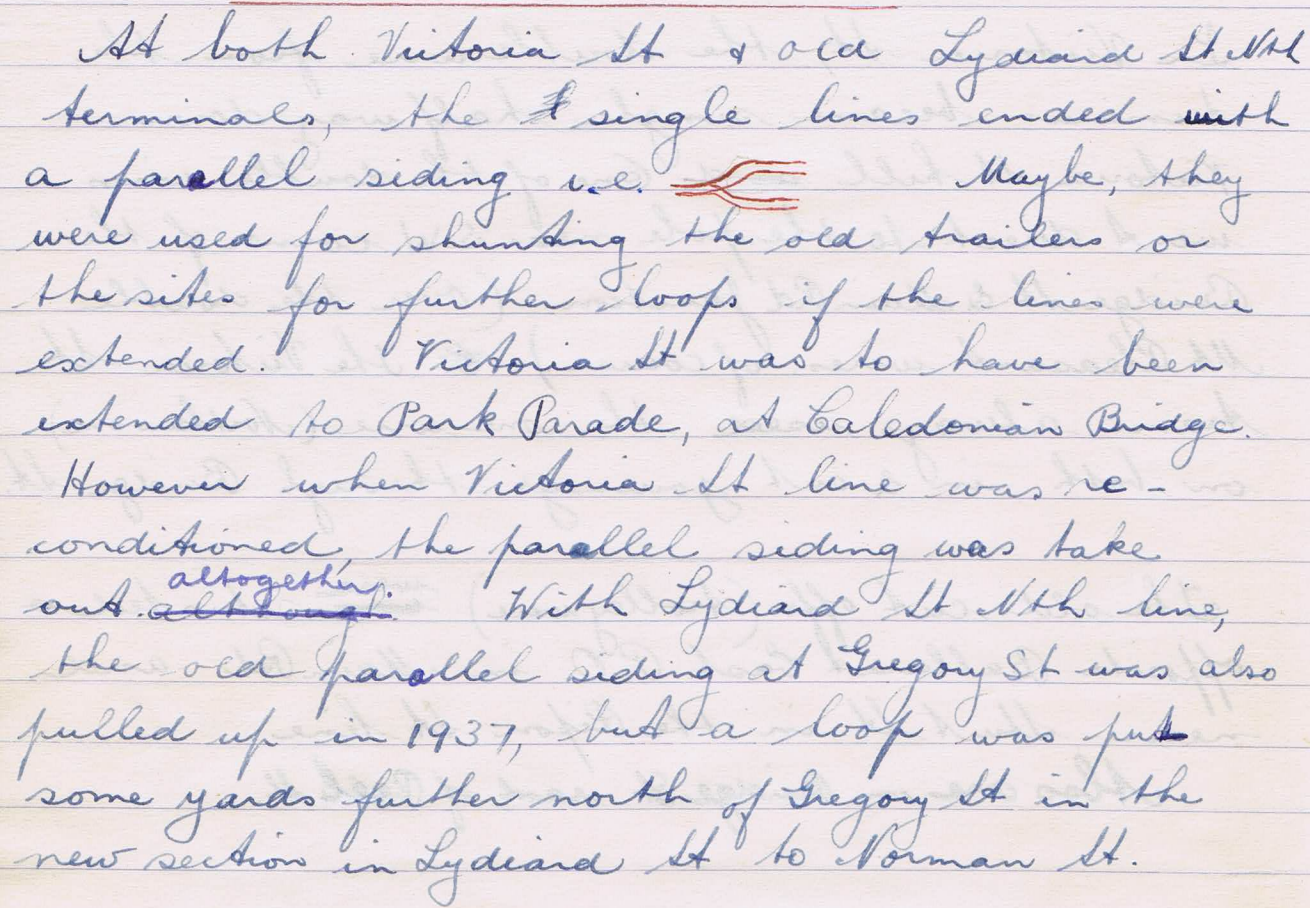 At both Victoria St & old Lydiard St Nth
terminals, the single lines ended with
a parallel siding i.e. Maybe, they
were used for shunting the old trailers or
the sites for further loops if the lines were
extended. Victoria St was to have been
extended to Park Parade, at Caledonian Bridge.
However when Victoria St line was re-
conditioned, the parallel siding was take
altogether.
out. although. With Lydiard St Nth line,
the old parallel siding at Gregory St was also
pulled up in 1937, but a loop was put
some yards further north of Gregory St in the
new section in Lydiard St to Norman St.